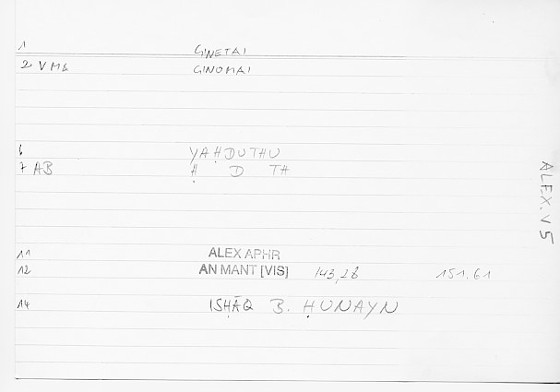 1 GINETAI
2 VMB GINOMAI
6 YAḤDUTHU
7 AB Ḥ D TH
11 ALEX APHR
12 AN MANT [VIS] 143,28 151.61
14 ISḤĀQ B. ḤUNAYN
ALEX.V5